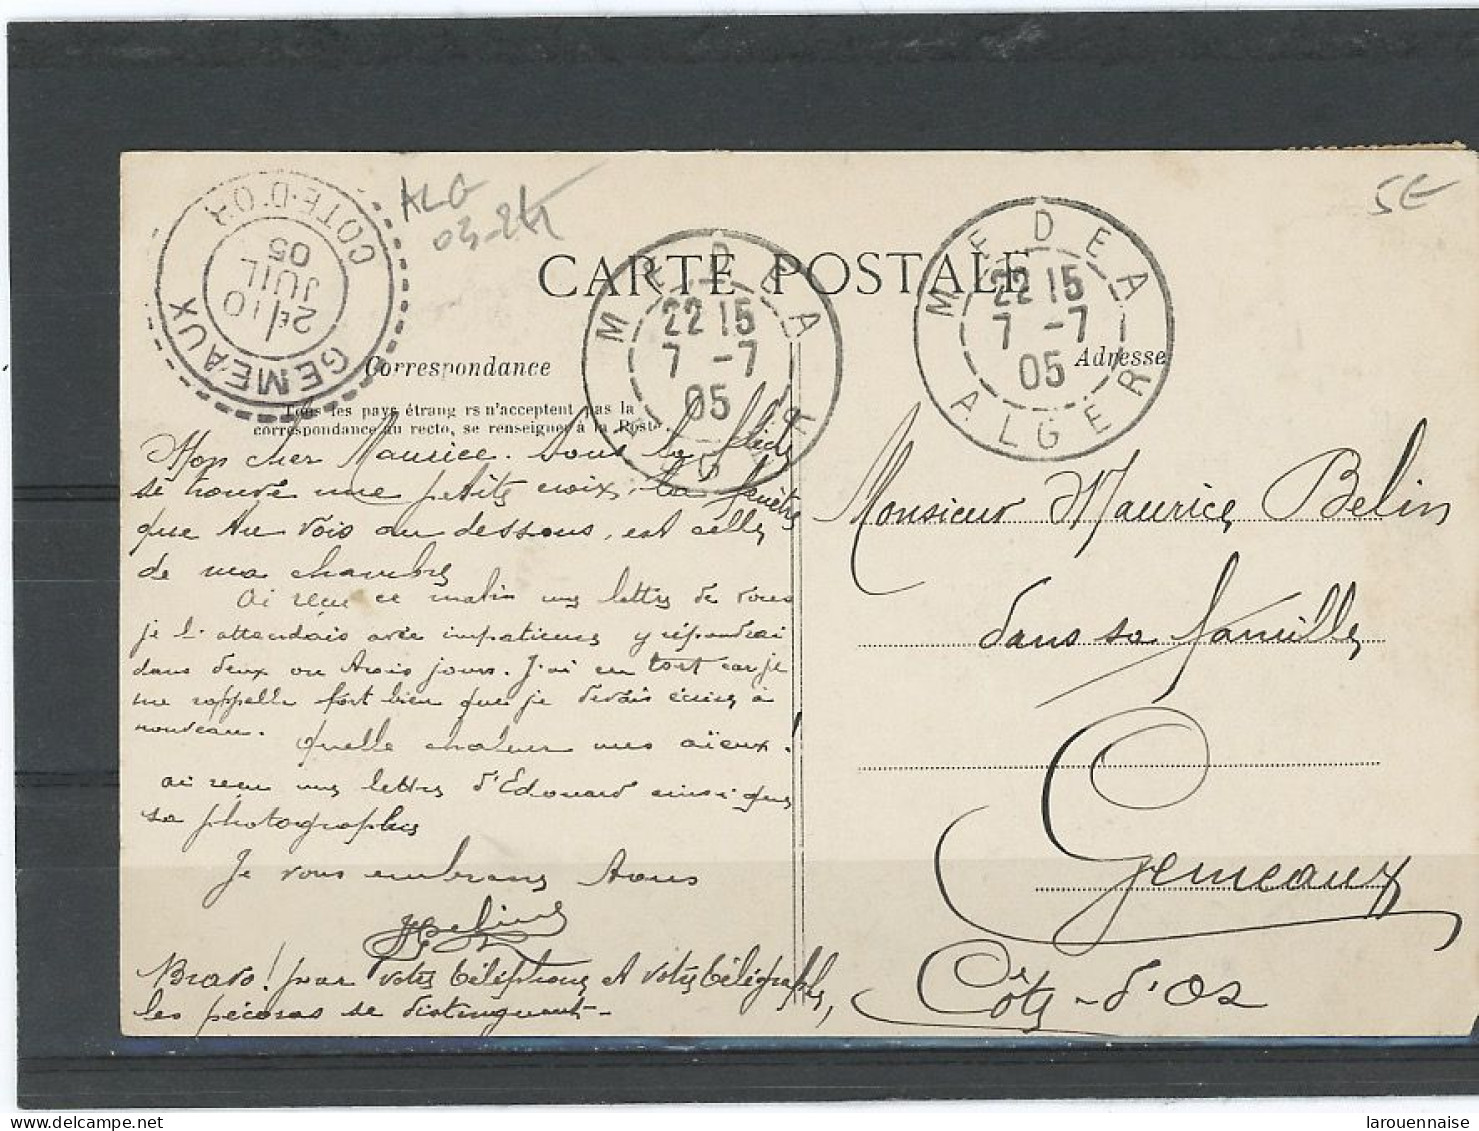 GEMEAUX
COTE-D'OR
2E/10
JUIL
05
ALG
5€
MEDEA
22 15
7 -7
05
ALGER
MEDEA
22 15
7 -7
05
ALGER
CARTE POSTALE
Correspondance
Adresse
Tous les pays étrang rs n'acceptent pas la
correspondance au recto, se renseigner à la Poste.
Mon cher Maurice. Sous la flèche
se trouve une petite croix, la fenêtre
que tu vois au dessous, est celle
de ma chambre
ai reçu ce matin une lettre de vous
je l'attendais avec impatience y répondrai
dans deux ou trois jours. J'ai eu tort car je
me rappelle fort bien que je devais écrire à
nouveau. Quelle chaleur mes aïeux.
ai reçu une lettre d'Edouard ainsi que
sa photographie
Je vous embrasse tous
Bravo! pour votre téléphone et votre télégraphe,
les pécoras se distinguent-
Monsieur Maurice Belin
dans sa famille
Gemeaux
Côte-d'Or
larouennaise